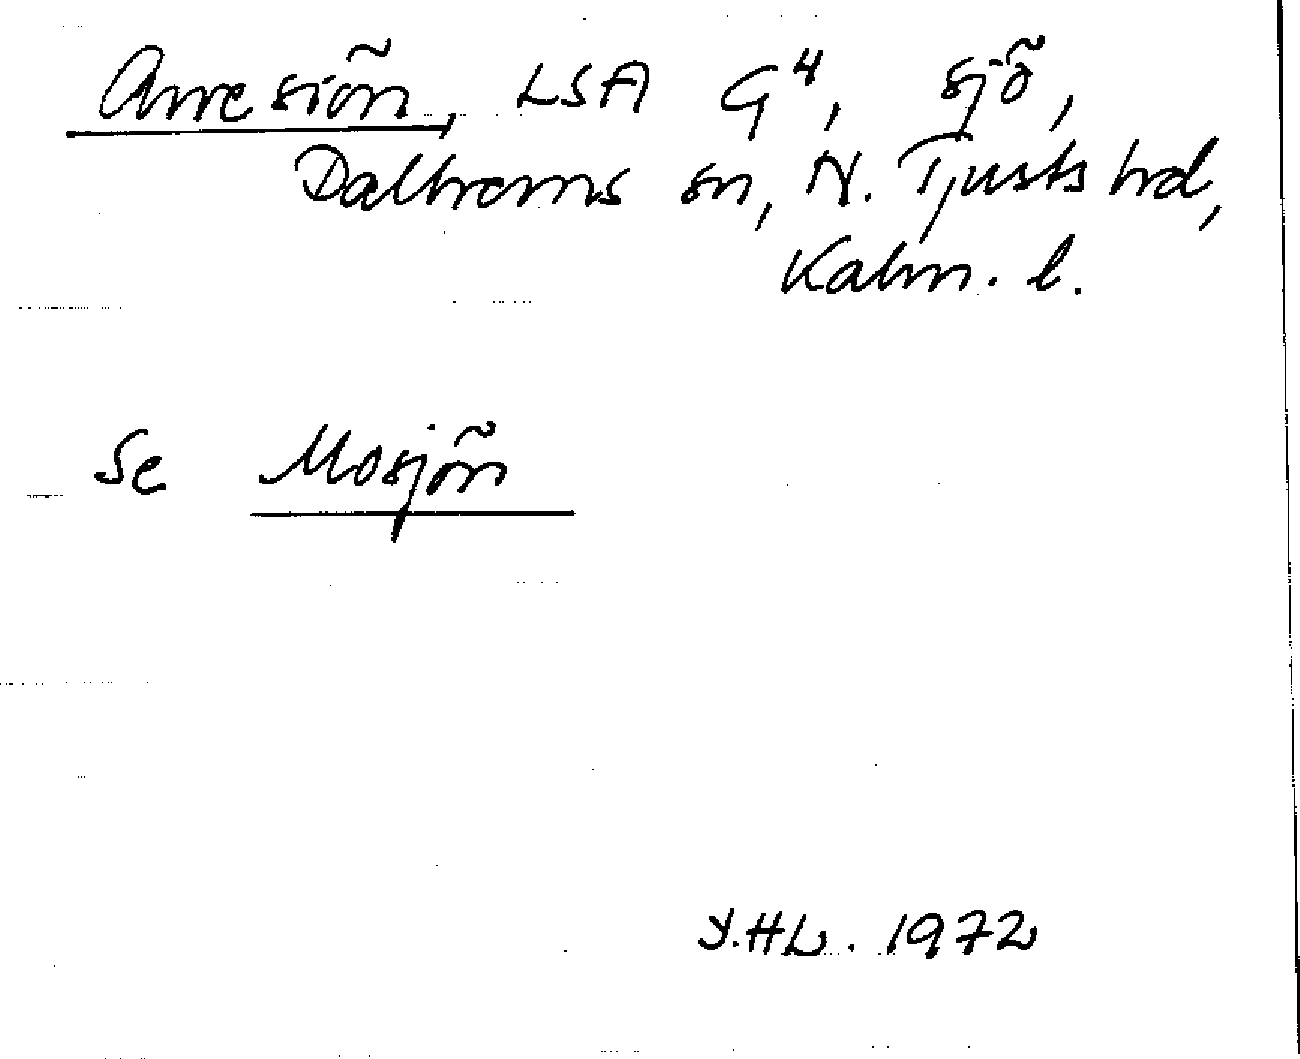 Arresiön, LSA G4, sjö,
Dalhems sn, N. Tjusts hd,
Kalm. l.
Se Mosjön
Y.HL. 1972